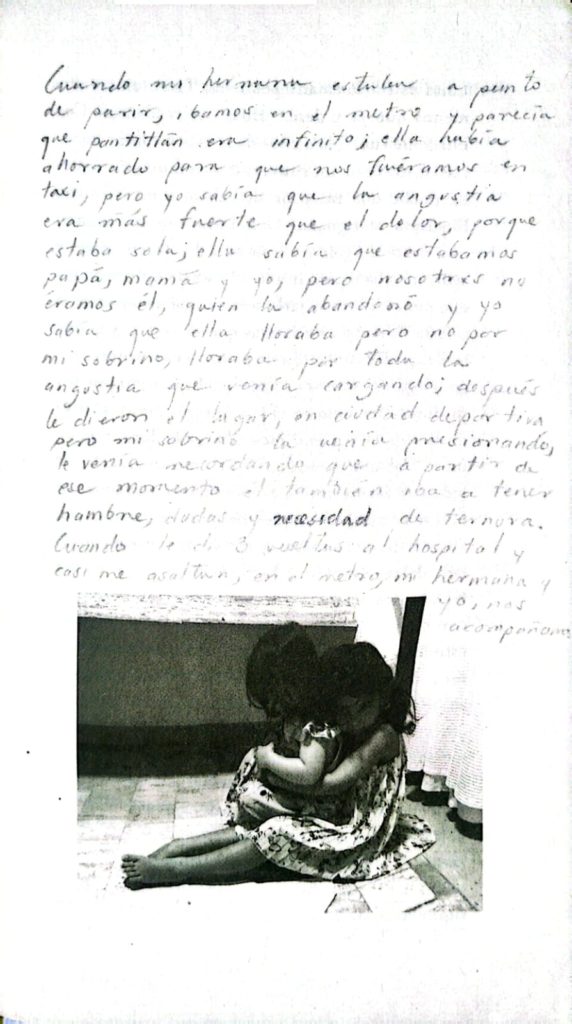 Cuando mi hermana estaba a punto
de parir, ibamos en el metro y parecía
que pantitlán era infinito; ella había
ahorrado para que nos fuéramos en
taxi, pero yo sabía que la angustia
era más fuerte que el dolor, porque
estaba sola; ella sabía que estabamos
papá, mamá y yo, pero nosotros no
éramos él, quien la abandonó y yo
sabía que ella lloraba pero no por
mi sobrino, lloraba por toda la
angustia que venía cargando; después
le dieron el lugar, en ciudad deportiva
pero mi sobrino la venía presionando,
le venía recordando que a partir de
ese momento él también iba a tener
hambre, dudas y necesidad de ternura.
Cuando le di 3 vueltas al hospital y
casi me asaltan, en el metro, mi hermana y
yo, nos
acompañamos